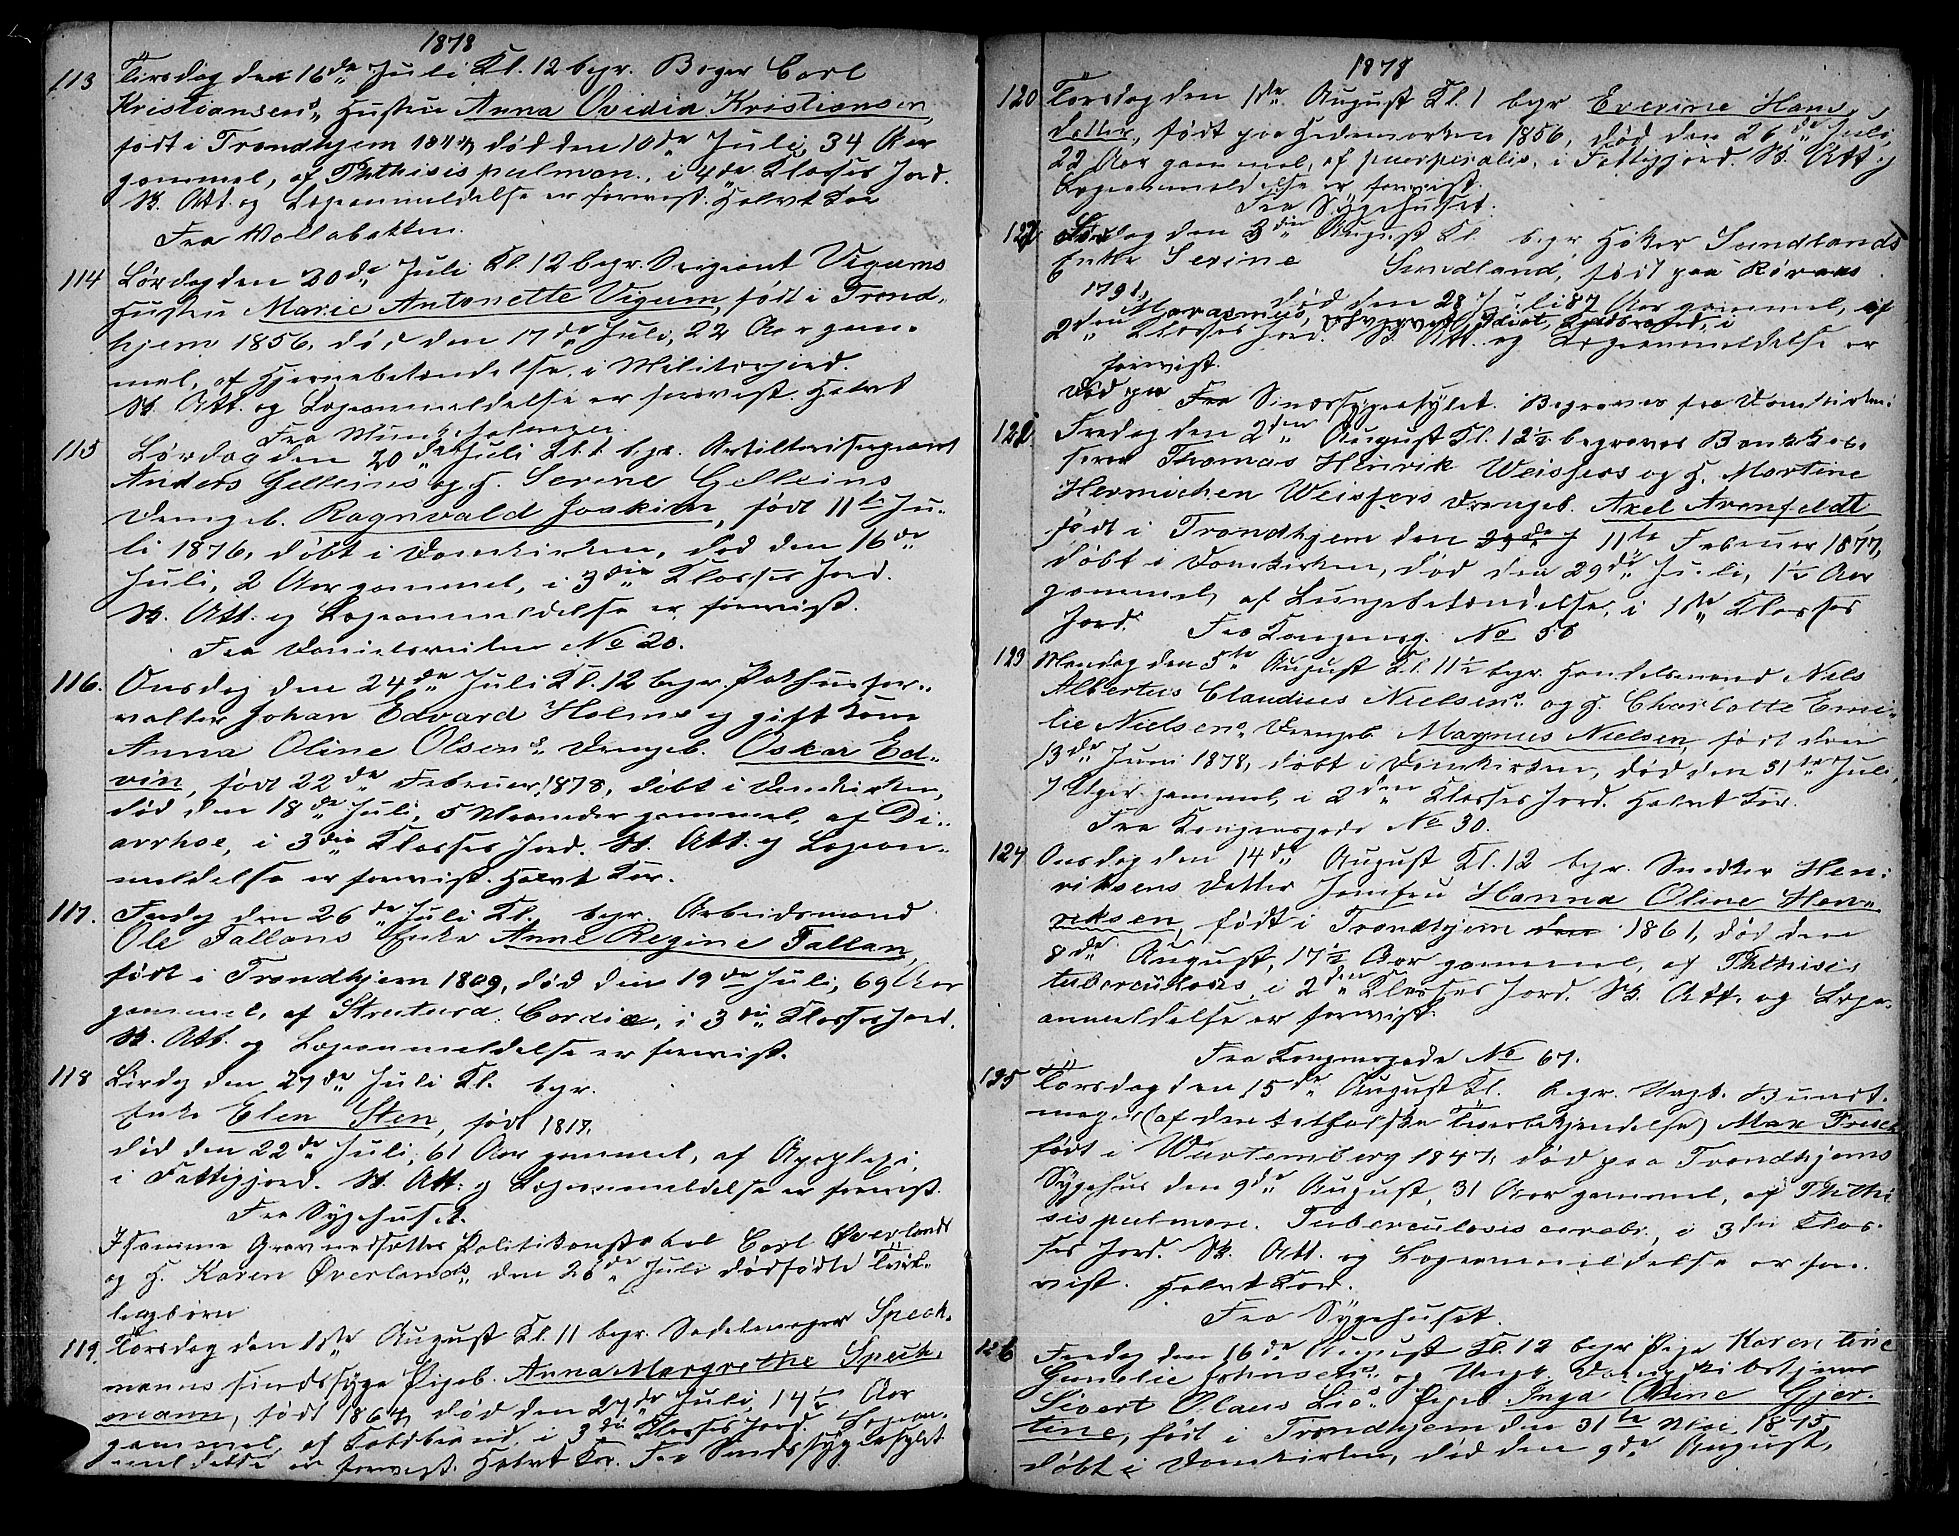 1878
113 Tirsdag den 16de Juli Kl. 12 begr. Bager Carl
Kristiansens Hustru Anna Ovidia Kristiansen,
født i Trondhjem 1844, død den 10de Juli, 34 Aar
gammel, af Phthisis pulmon., i 4de Klasses Jord.
Sk. Att. og Lægeanmeldelse er forevist. Halvt Kor
Fra Vollabakken.
114 Lørdag den 20de Juli Kl. 12 begr. Sergeant Vigums
Hustru Marie Antonette Vigum, født i Trond-
hjem 1856, død den 17de Juli, 22 Aar gam-
mel, af Hjernebetændelse, i Militærjord.
Sk. Att. og Lægeanmeldelse er forevist. Halvt
Fra
115 Lørdag den 20de Juli Kl. 1 begr. Artillerisergeant
Anders Gelleins og H. Serine Gelleins
Drengeb. Ragnvald Joakim, født 11te Ju-
li 1876, døbt i Domkirken, død den 16de
Juli, 2 Aar gammel, i 3die Klasses Jord.
Sk. Att. og Lægeanmeldelse er forevist.
Fra Danielsveiten No 20.
116. Onsdag den 24de Juli Kl. 12 begr. Pakhusfor-
valter Johan Edvard Holms og gift Kone
Anna Oline Olsens Drengeb. Oskar Ed-
vin, født 22de Februar 1878, døbt i Domkirken,
død den 18de Juli, 5 Maaneder gammel, af Di-
arrhoe, i 3die Klasses Jord. Sk. Att. og Lægean-
meldelse er forevist. Halvt Kor.
117. Fredag den 26de Juli Kl. begr. Arbeidsmand
Ole Fallans Enke Anne Regine Fallan,
født i Trondhjem 1809, død den 19de Juli, 69 Aar
gammel, af Cordis, i 3die Klasses Jord.
Sk. Att. og Lægeanmeldelse er forevist.
118 Lørdag den 27de Juli Kl. begr.
Enke Elen Sten, født 1817,
død den 22de Juli, 61 Aar gammel, af Apoplexi,
i Fattigjord. Sk. Att. og Lægeanmeldelse er forevist.
Fra Sygehuset.
I samme Grav nedsættes Politikonstabel Carl Øverlands
og H. Karen Øverlands den 26de Juli dødfødte Tvil-
lingbørn
119. Torsdag den 1ste August Kl. 11 begr. Sadelmager Speck-
manns sindssyge Pigeb. Anna Margrethe Speck-
mann, født 1864, død den 27de Juli, 14½ Aar
gammel, af Koldbrand, i 3die Klasses Jord. Lægean-
meldelse er forevist. Halvt Kor. Fra Sindssygeasylet
1878
120 Torsdag den 1ste August Kl. 1 begr Everine Hans-
datter, født paa Hedemarken 1856, død den 26de Juli,
22 Aar gammel, af puerperalis, i Fattigjord. Sk. Att og
Lægeanmeldelse er forevist.
Fra Sygehuset.
121 Lørdag den 3die August Kl. begr. Høker Sundlands
Enke Serine Sundland, født paa Røraas
1791, død den 28 Juli 87 Aar gammel, af
Marasmus, Idiot, i
2den Klasses Jord. Sk. Att. og Lægeanmeldelse er
forevist.
Død paa Fra Sindssygeasylet. Begraves fra Domkirken.
122 Fredag den 2den August Kl. 12½ begraves Bankkas-
serer Thomas Henrik Weisfers og H. Martine
Hermichen Weisfers Drengeb. Axel Arenfeldt
født i Trondhjem den 11te Februar 1877,
døbt i Domkirken, død den 29de Juli, 1½ Aar
gammel, af Lungebetændelse, i 1ste Klasses
Jord. Fra Kongensg. No 56
123 Mandag den 5te August Kl. 11½ begr. Handelsmand Nils
Albertus Claudius Nielsens og H. Charlotte Emi-
lie Nielsens Drengeb Magnus Nielsen, født den
13de Juni 1878, døbt i Domkirken, død den 31te Juli,
7 Uger gammel, i 2den Klasses Jord. Halvt Kor.
Fra Kongensgade No 30.
124 Onsdag den 14de August Kl. 12 begr. Snedker Hen-
riksens Datter Jomfru Hanna Oline Hen-
riksen, født i Trondhjem den 1861, død den
8de August, 17½ Aar gammel, af Phthisis
tuberculosis, i 2den Klasses Jord. Sk. Att. og Læge-
anmeldelse er forevist.
Fra Kongensgade No 67.
125 Torsdag den 15de August Kl. begr. Ungk. Bundt-
mager (af den katholske Troesbekjendelse) Max Frisch
født i Würtemberg 1847, død paa Trondhjems
Sygehus den 9de August, 31 Aar gammel, af Phthi-
sis pulmon. Tuberculosis cerebr., i 3die Klas-
ses Jord. Sk. Att. og Lægeanmeldelse er fore-
vist. Halvt Kor.
Fra Sygehuset.
126 Fredag den 16de August Kl. 12 begr Pige Karen Trine
Gunelie Johnsens og Ungk.
Sivert Olaus Lies Pigeb Inga Oline Gjer-
tine, født i Trondhjem den 31te Mai 1875
døbt i Domkirken, død den 9de August,